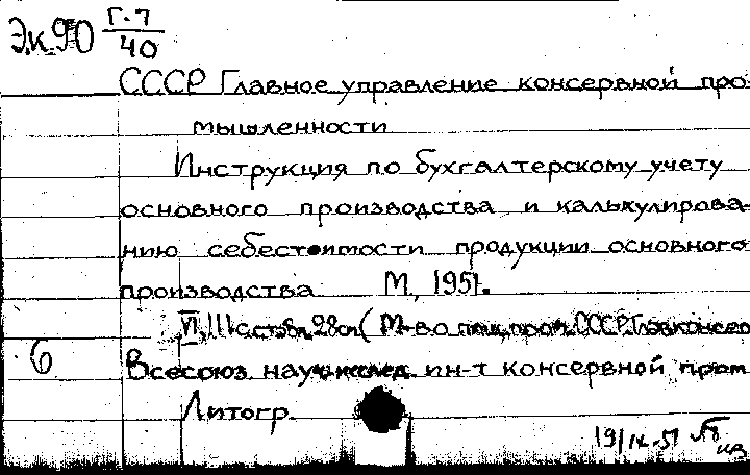 Эк.90 Г-7/40
СССР Главное управление консервной про-
мышленности
Инструкция по бухгалтерскому учету
основного производства и калькулирова-
нию себестоимости продукции основного
производства М., 1951.
VI, 111 с. 28см (М-во пищ. пром. СССР. Главконсерв
6 Всесоюз. науч. исслед. ин-т консервной пром
Литогр.
19/IX-51